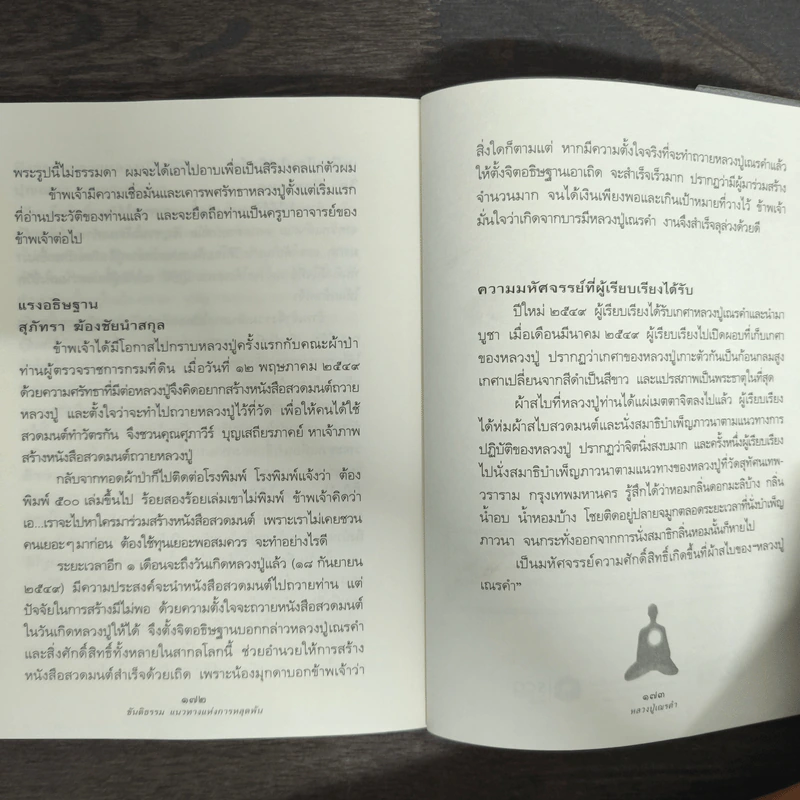 พระรูปนี้ไม่ธรรมดา ผมจะได้เอาไปอาบเพื่อเป็นสิริมงคลแก่ตัวผม
ข้าพเจ้ามีความเชื่อมั่นและเคารพศรัทธาหลวงปู่ตั้งแต่เริ่มแรก
ที่อ่านประวัติของท่านแล้ว และจะยึดถือท่านเป็นครูบาอาจารย์ของ
ข้าพเจ้าต่อไป
แรงอธิษฐาน
สุภัทรา ฆ้องชัยนำสกุล
ข้าพเจ้าได้มีโอกาสไปกราบหลวงปู่ครั้งแรกกับคณะผ้าป่า
ท่านผู้ตรวจราชการกรมที่ดิน เมื่อวันที่ ๑๒ พฤษภาคม ๒๕๔๙
ด้วยความศรัทธาที่มีต่อหลวงปู่จึงคิดอยากสร้างหนังสือสวดมนต์ถวาย
หลวงปู่ และตั้งใจว่าจะทำไปถวายหลวงปู่ไว้ที่วัด เพื่อให้คนได้ใช้
สวดมนต์ทำวัตรกัน จึงชวนคุณศุภาวีร์ บุญเสถียรภาคย์ หาเจ้าภาพ
สร้างหนังสือสวดมนต์ถวายหลวงปู่
กลับจากทอดผ้าป่าก็ไปติดต่อโรงพิมพ์ โรงพิมพ์แจ้งว่า ต้อง
พิมพ์ ๕๐๐ เล่มขึ้นไป ร้อยสองร้อยเล่มเขาไม่พิมพ์ ข้าพเจ้าคิดว่า
เอ...เราจะไปหาใครมาร่วมสร้างหนังสือสวดมนต์ เพราะเราไม่เคยชวน
คนเยอะๆมาก่อน ต้องใช้ทุนเยอะพอสมควร จะทำอย่างไรดี
ระยะเวลาอีก ๑ เดือนจะถึงวันเกิดหลวงปู่แล้ว (๑๘ กันยายน
๒๕๔๙) มีความประสงค์จะนำหนังสือสวดมนต์ไปถวายท่าน แต่
ปัจจัยในการสร้างมีไม่พอ ด้วยความตั้งใจจะถวายหนังสือสวดมนต์
ในวันเกิดหลวงปู่ให้ได้ จึงตั้งจิตอธิษฐานบอกกล่าวหลวงปู่เณรคำ
และสิ่งศักดิ์สิทธิ์ทั้งหลายในสากลโลกนี้ ช่วยอำนวยให้การสร้าง
หนังสือสวดมนต์สำเร็จด้วยเถิด เพราะน้องมุกดาบอกข้าพเจ้าว่า
๑๗๒
ขันติธรรม แนวทางแห่งการหลุดพ้น
สิ่งใดก็ตามแต่ หากมีความตั้งใจจริงที่จะทำถวายหลวงปู่เณรคำแล้ว
ให้ตั้งจิตอธิษฐานเอาเถิด จะสำเร็จเร็วมาก ปรากฏว่ามีผู้มาร่วมสร้าง
จำนวนมาก จนได้เงินเพียงพอและเกินเป้าหมายที่วางไว้ ข้าพเจ้า
มั่นใจว่าเกิดจากบารมีหลวงปู่เณรคำ งานจึงสำเร็จลุล่วงด้วยดี
ความมหัศจรรย์ที่ผู้เรียบเรียงได้รับ
ปีใหม่ ๒๕๔๙ ผู้เรียบเรียงได้รับเกศาหลวงปู่เณรคำและนำมา
บูชา เมื่อเดือนมีนาคม ๒๕๔๙ ผู้เรียบเรียงไปเปิดผอบที่เก็บเกศา
ของหลวงปู่ ปรากฏว่าเกศาของหลวงปู่เกาะตัวกันเป็นก้อนกลมสูง
เกศาเปลี่ยนจากสีดำเป็นสีขาว และแปรสภาพเป็นพระธาตุในที่สุด
ผ้าสไบที่หลวงปู่ท่านได้แผ่เมตตาจิตลงไปแล้ว ผู้เรียบเรียง
ได้ห่มผ้าสไบสวดมนต์และนั่งสมาธิบำเพ็ญภาวนาตามแนวทางการ
ปฏิบัติของหลวงปู่ ปรากฏว่าจิตนิ่งสงบมาก และครั้งหนึ่งผู้เรียบเรียง
ไปนั่งสมาธิบำเพ็ญภาวนาตามแนวทางของหลวงปู่ที่วัดสุทัศนเทพ-
วราราม กรุงเทพมหานคร รู้สึกได้ว่าหอมกลิ่นดอกมะลิบ้าง กลิ่น
น้ำอบ น้ำหอมบ้าง โชยติดอยู่ปลายจมูกตลอดระยะเวลาที่นั่งบำเพ็ญ
ภาวนา จนกระทั่งออกจากการนั่งสมาธิกลิ่นหอมนั้นก็หายไป
เป็นมหัศจรรย์ความศักดิ์สิทธิ์เกิดขึ้นที่ผ้าสไบของ"หลวงปู่
เณรคำ"
๑๗๓
หลวงปู่เณรคำ